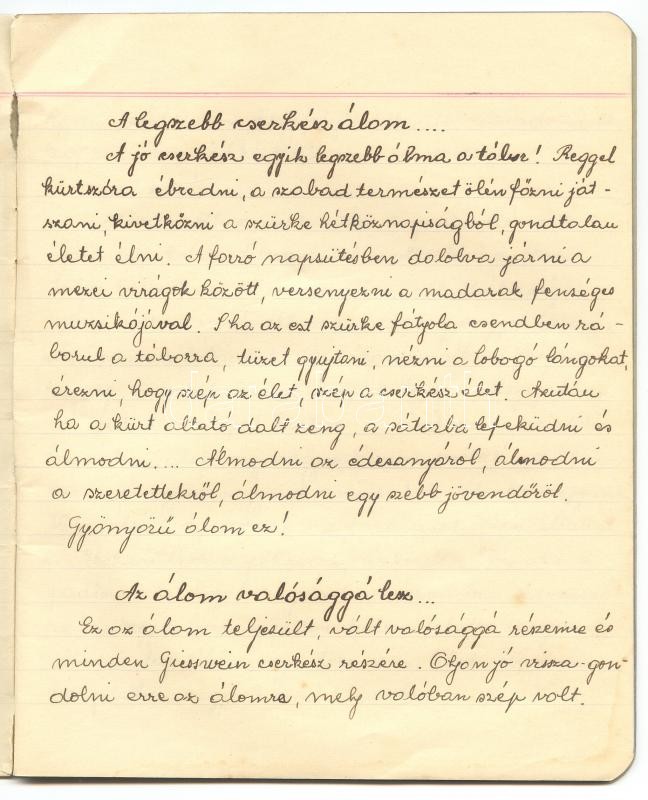 A legszebb cserkész álom....
A jó cserkész egyik legszebb álma a tábor! Reggel
kürtszóra ébredni, a szabad természet ölén főzni ját-
szani, kivetkőzni a szürke hétköznapiságból, gondtalan
életet élni. A forró napsütésben dalolva járni a
mezei virágok között, versenyezni a madarak fenséges
muzsikájával. S ha az est szürke fátyola csendben rá-
borul a táborra, tüzet gyujtani, nézni a lobogó lángokat,
érezni, hogy szép az élet, szép a cserkész élet. Azután
ha a kürt altató dalt zeng, a sátorba lefeküdni és
álmodni.... Álmodni az édesanyáról, álmodni
a szeretettekről, álmodni egy szebb jövendőről.
Gyönyörű álom ez!
Az álom valósággá lesz...
Ez az álom teljesült, vált valósággá részemre és
minden Giesswein cserkész részére. Olyan jó vissza-gon-
dolni erre az álomra, mely valóban szép volt.